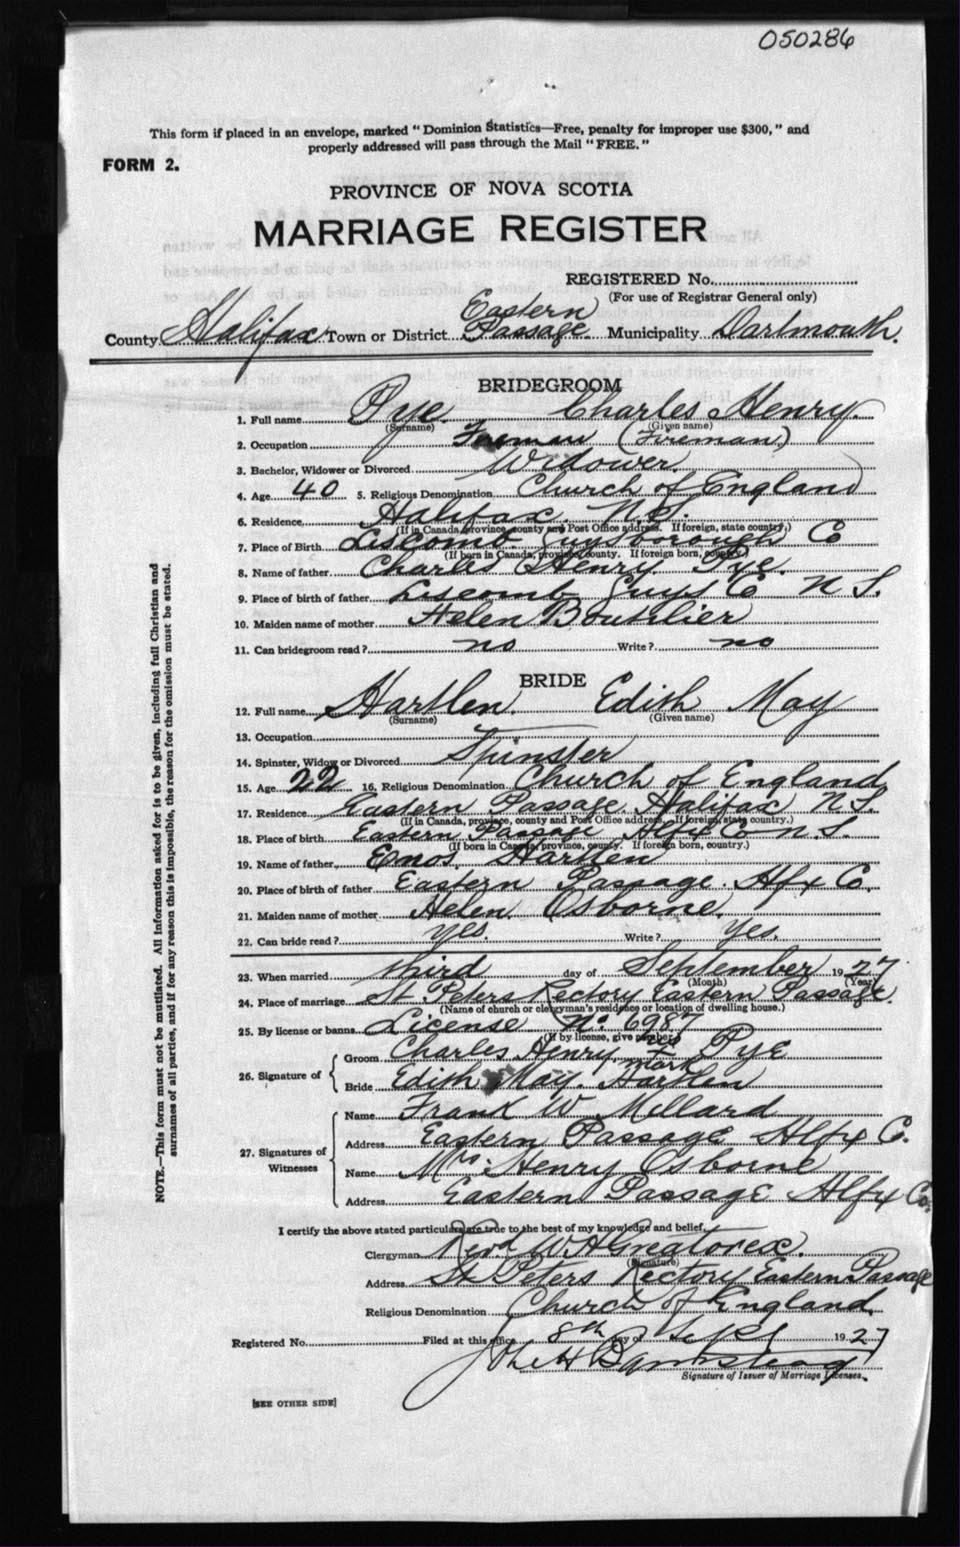 050286
This form if placed in an envelope, marked "Dominion Statistics—Free, penalty for improper use $300," and
properly addressed will pass through the Mail "FREE."
FORM 2.
PROVINCE OF NOVA SCOTIA
MARRIAGE REGISTER
REGISTERED No.
(For use of Registrar General only)
County Halifax Town or District Eastern Passage Municipality Dartmouth.
BRIDEGROOM
1. Full name Pye. Charles Henry.
(Surname) (Given name)
2. Occupation Fireman (Fireman)
3. Bachelor, Widower or Divorced Widower.
4. Age 40 5. Religious Denomination Church of England
6. Residence Halifax. N.S.
(If in Canada, province, county and Post Office address. If foreign, state country.)
7. Place of Birth Liscomb. Guysborough Co
(If born in Canada, province, county. If foreign born, country.)
8. Name of father Charles Henry Pye.
9. Place of birth of father Liscomb Guys Co N S.
10. Maiden name of mother Helen Boutilier
11. Can bridegroom read? no Write? no
BRIDE
12. Full name Hartlen. Edith May
(Surname) (Given name)
13. Occupation
14. Spinster, Widow or Divorced Spinster
15. Age 22 16. Religious Denomination Church of England
17. Residence Eastern Passage. Halifax N.S.
(If in Canada, province, county and Post Office address. If foreign, state country.)
18. Place of birth Eastern Passage Hlfx Co N S.
(If born in Canada, province, county. If foreign born, country.)
19. Name of father Enos Hartlen
20. Place of birth of father Eastern Passage. Hfx Co.
21. Maiden name of mother Helen Osborne.
22. Can bride read? yes. Write? Yes.
23. When married third day of September 1927
(Month) (Year)
24. Place of marriage St Peters Rectory Eastern Passage.
(Name of church or clergyman's residence or location of dwelling house.)
25. By license or banns License No. 6987
(If by license, give number.)
26. Signature of
Groom Charles Henry his x mark Pye
Bride Edith May. Hartlen
27. Signatures of Witnesses
Name Frank W. Millard
Address Eastern Passage Hlfx Co.
Name Mrs. Henry Osborne
Address Eastern Passage Hlfx Co.
I certify the above stated particulars are true to the best of my knowledge and belief.
Clergyman Revd W H Greatorex.
(Signature)
Address St Peters Rectory Eastern Passage
Religious Denomination Church of England.
Registered No. Filed at this office 8th day of Sept 1927
Signature of Issuer of Marriage Licenses.
[SEE OTHER SIDE]
NOTE.—This form must not be mutilated. All information asked for is to be given, including full Christian and
surnames of all parties, and if for any reason this is impossible, the reason for the omission must be stated.